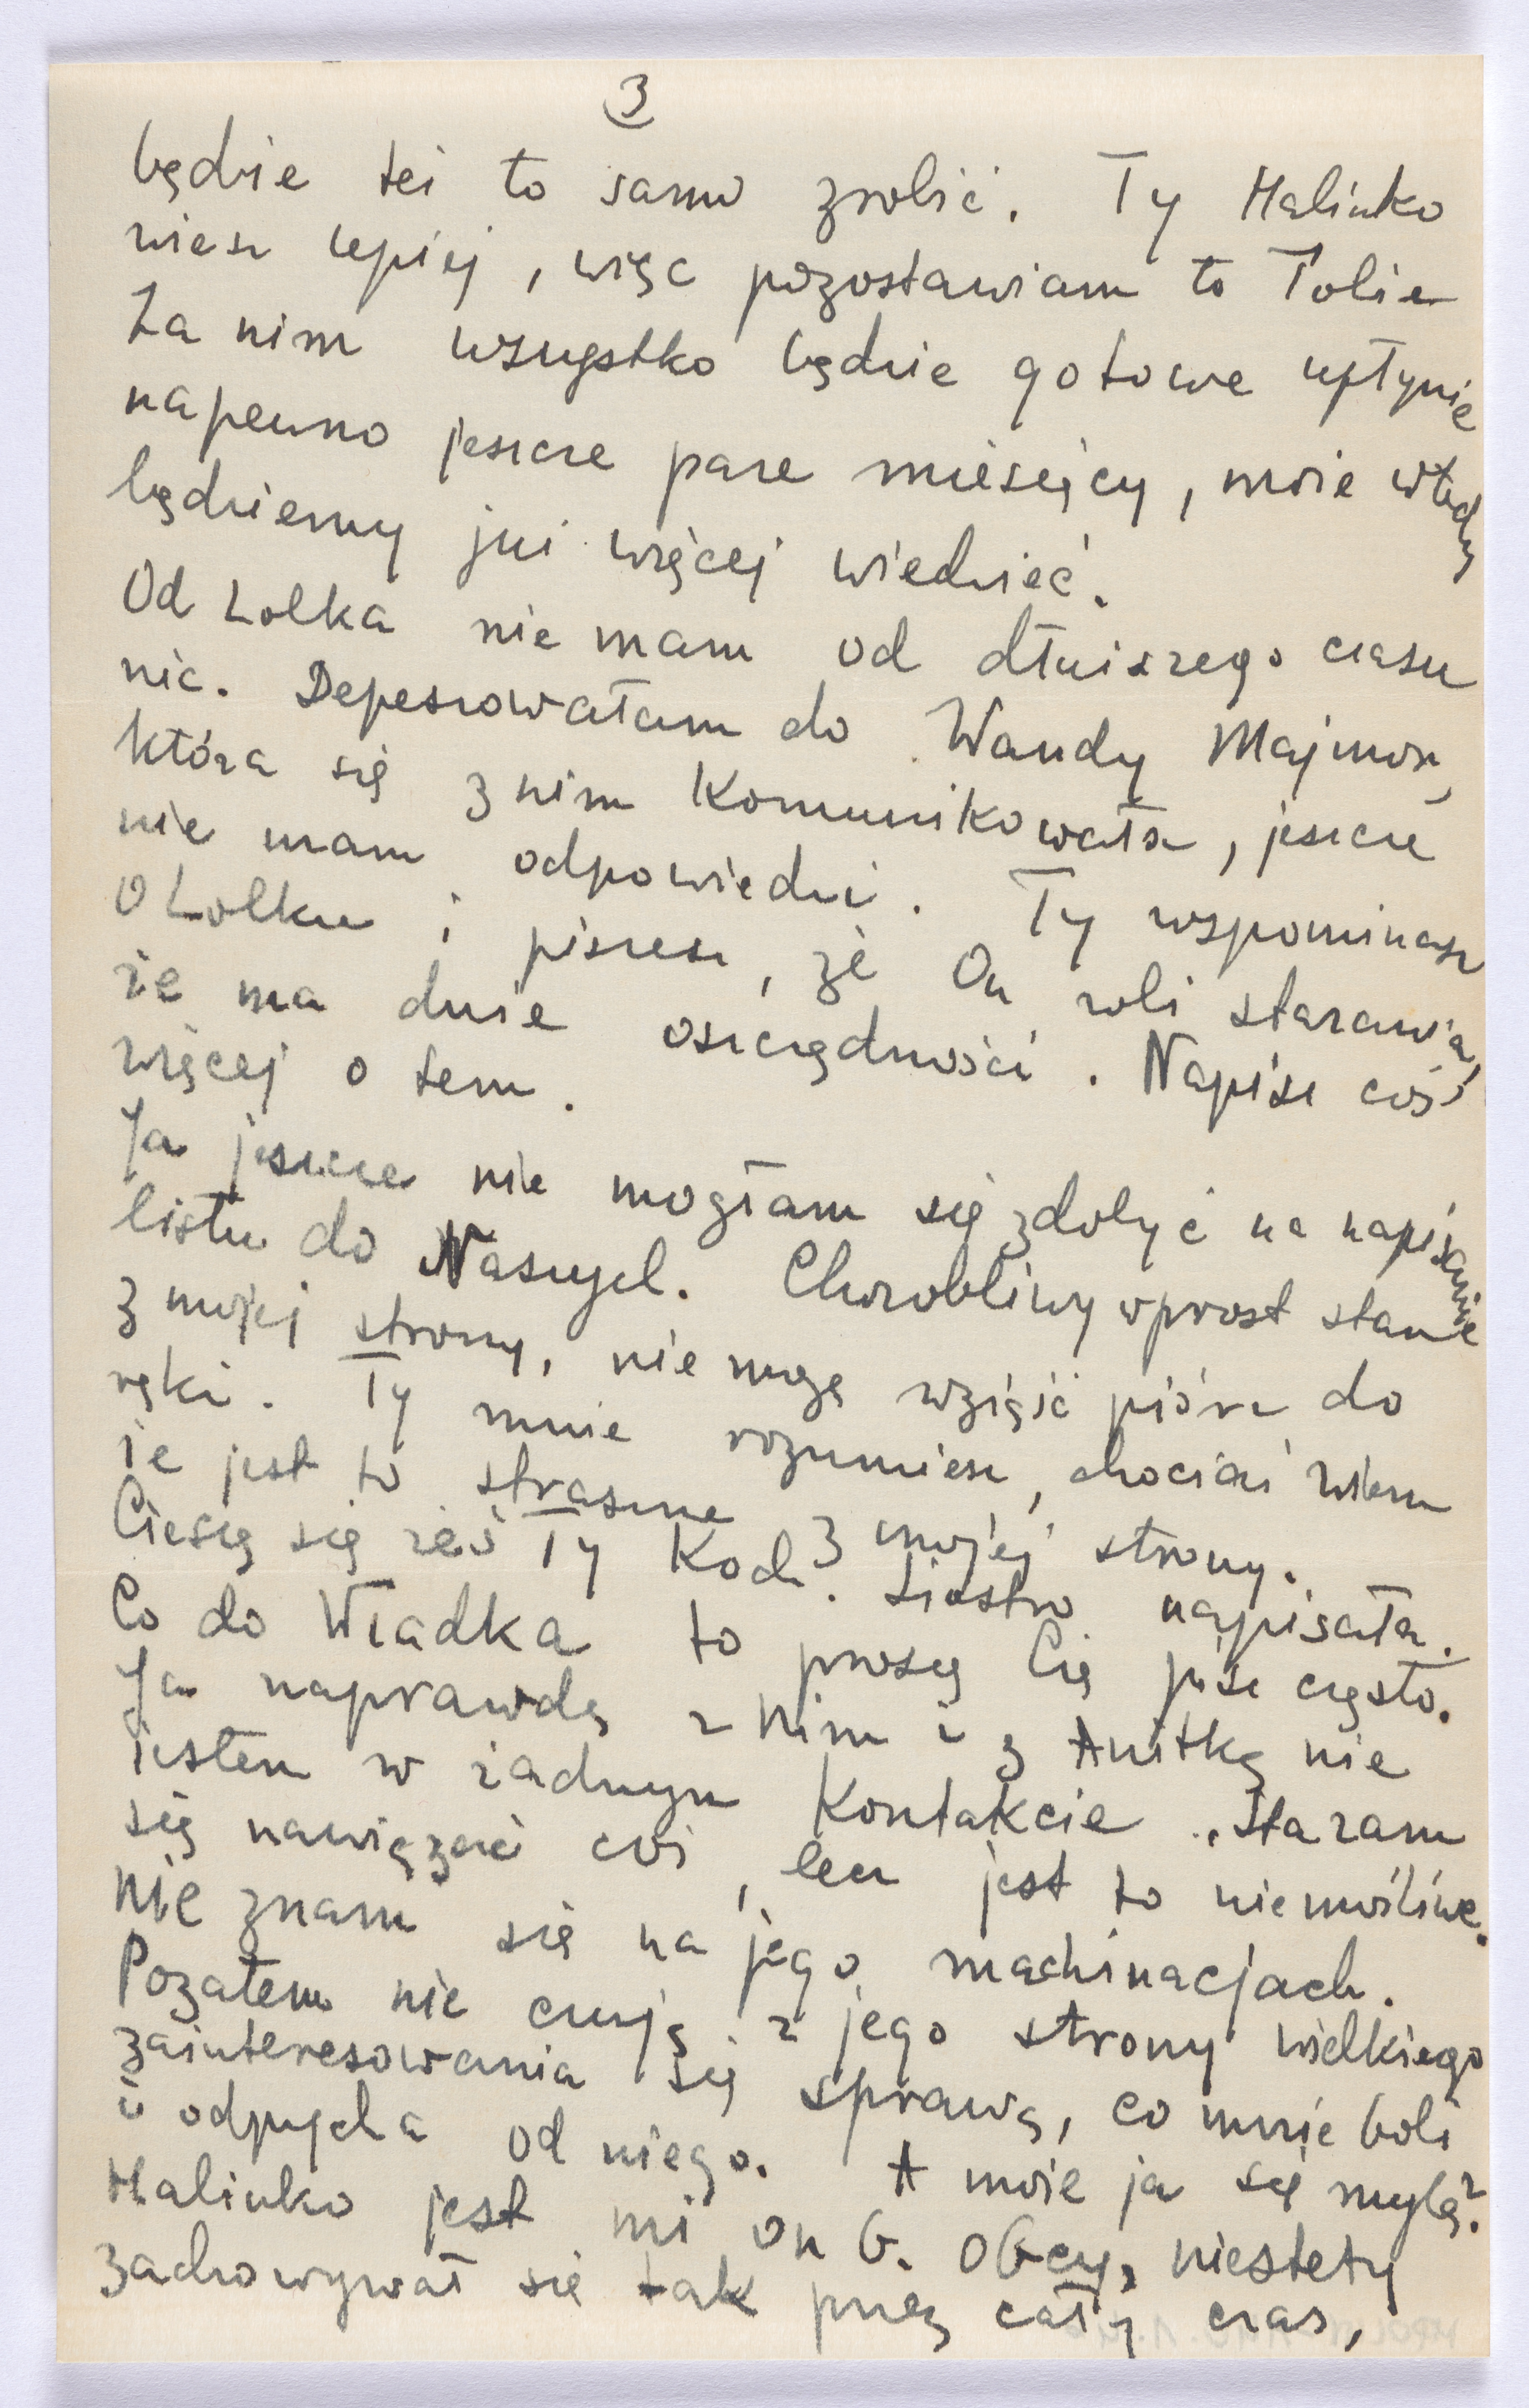 3
będzie też to samo zrobić. Ty Halinko
wiesz lepiej, więc pozostawiam to Tobie
Za nim wszystko będzie gotowe upłynie
napewno jeszcze pare miesięcy, może wtedy
będziemy już więcej wiedzieć.
Od Lolka nie mam od dłuższego czasu
nic. Depeszowałam do Wandy
która się z nim komunikowała, jeszcze
nie mam odpowiedzi. Ty wspominasz
o Lolku i piszesz, że On robi starania,
że ma duże oszczędności. Napisz coś
więcej o tem.
Ja jeszcze nie mogłam się zdobyć na napisanie
listu do Naszych. Chorobliwy wprost stan
z mojej strony, nie mogę wziąść pióra do
ręki. Ty mnie rozumiesz, chociaż wiem
że jest to straszne z mojej strony.
Cieszę się żeś Ty Koch. Siostro napisała.
Co do Władka to proszę Cię pisz często.
Ja naprawdę z Nim i z Anitką nie
jestem w żadnym kontakcie. Staram
się nawiązać coś, lecz jest to niemożliwe.
Nie znam się na jego machinacjach.
Pozatem nie czuję z jego strony wielkiego
zainteresowania się sprawą, co mnie boli
i odpycha od niego. A może ja się mylę?
Halinko jest mi on b. obcy, niestety
zachowywał się tak przez cały czas,